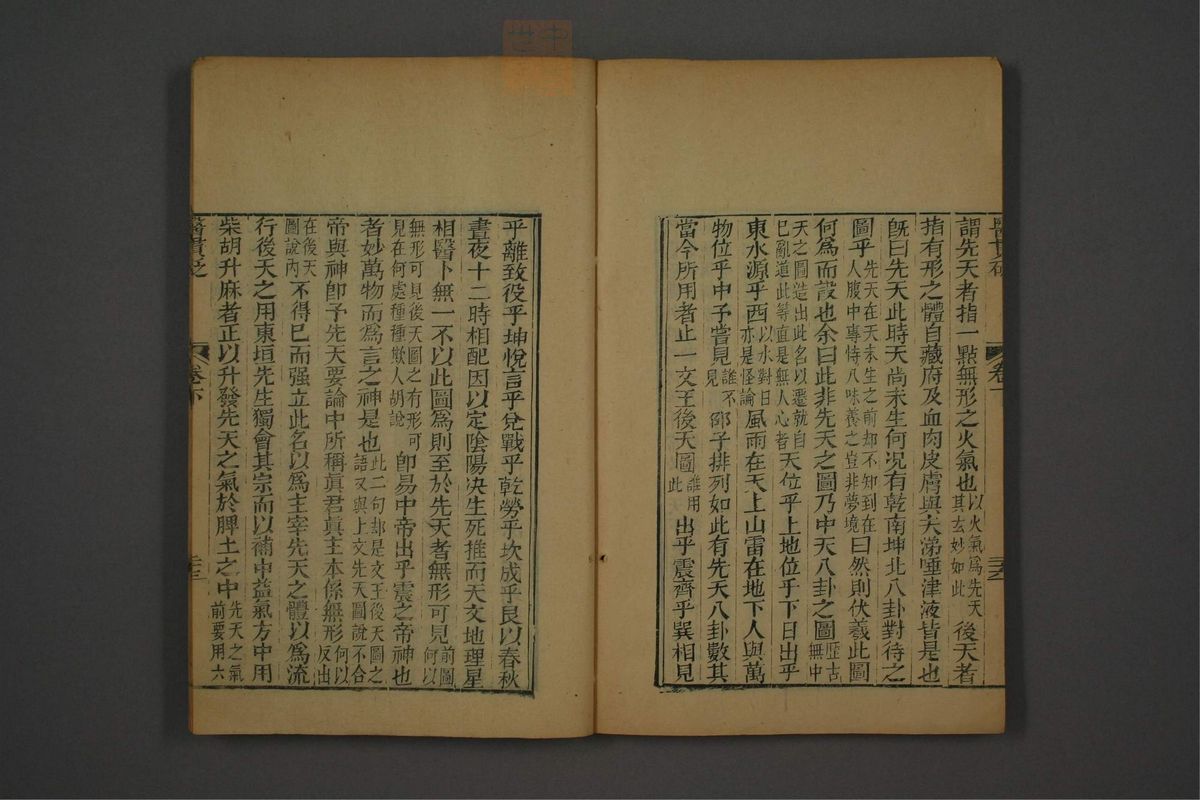 謂先天者指一點無形之火氣也以火氣爲先天其玄妙如此後天者
指有形之體自藏府及血肉皮膚與夫涕唾津液皆是也
旣曰先天此時天尚未生何况有乾南坤北八卦對待之
圖乎先天在天未生之前却不知到在人腹中專恃八味養之豈非夢境曰然則伏羲此圖
何爲而設也余曰此非先天之圖乃中天八卦之圖歷古無中
天之圖造出此名以遷就自已亂道此等直是無人心者天位乎上地位乎下日出乎
東水源乎西以水對日亦是怪論風雨在天上山雷在地下人與萬
物位乎中予嘗見誰不見邵子排列如此有先天八卦數其
當今所用者止一文王後天圖誰用此出乎震齊乎巽相見
乎離致役乎坤悅言乎兌戰乎乾勞乎坎成乎艮以春秋
晝夜十二時相配因以定陰陽决生死推而天文地理星
相醫卜無一不以此圖爲則至於先天者無形可見前圖何以
無形可見後天圖之有形可見在何處種種欺人胡說卽易中帝出乎震之帝神也
者妙萬物而爲言之神是也此二句却是文王後天圖之語又與上文先天圖說不合
帝與神卽予先天要論中所稱眞君眞主本係無形何以反出
在後天圖說內不得已而强立此名以爲主宰先天之體以爲流
行後天之用東垣先生獨會其宗而以補中益氣方中用
柴胡升麻者正以升發先天之氣於脾土之中先天之氣前要用六
醫貫砭
卷下